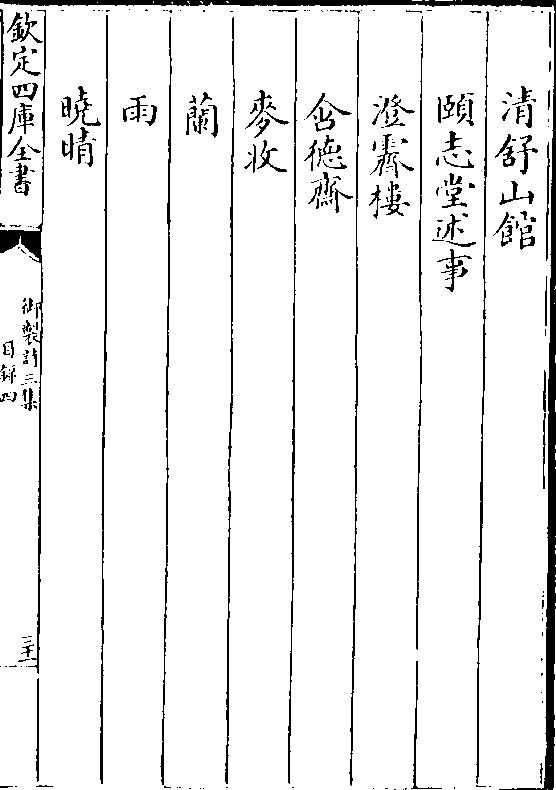 清舒山館
頤志堂述事
澄霽樓
含德齋
麥收
蘭
雨
曉晴
欽定四庫全書
御製詩三集
目録四
三十一